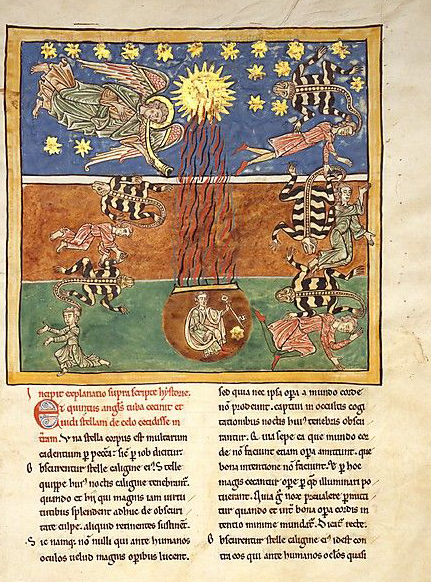 Incipit explanatio supra scripte hystorie.
Et quintus angls tuba cecinit et
vidi stellam de celo cecidisse in
tram. Vna stella corpus est multarum
cadentium p peccata: sic p iob dicitur
Obscurentur stelle caligine ei. Stelle
quippe huius noctis caligine tenebrant
quando et hii qui magnis iam uirtu
tibus splendent adhuc de obscuri
tate culpe. aliquid retinentes sustinet.
Sic namq non nulli qui ante humanos
oculos uelud magnis operibus lucent.
sed quia nec ipsa opa a mundo corde
non prodeunt. captiui in occultis cogi
tationibus noctis huius tenebris obscu
rantur. Qui sepe ea que mundo cor
de non faciunt etiam opa amittunt. que
bona intentione non faciunt. Vt p hoc
magis cecantur ope p qd illuminari po
tuerant. Quia g nox preualere pmitti
tur quando et int bona opa cordis in
tentio minime mundatur. Dicat recte.
Obscurentur stelle caligine ei idest con
tra eos qui ante humanos oclos quasi